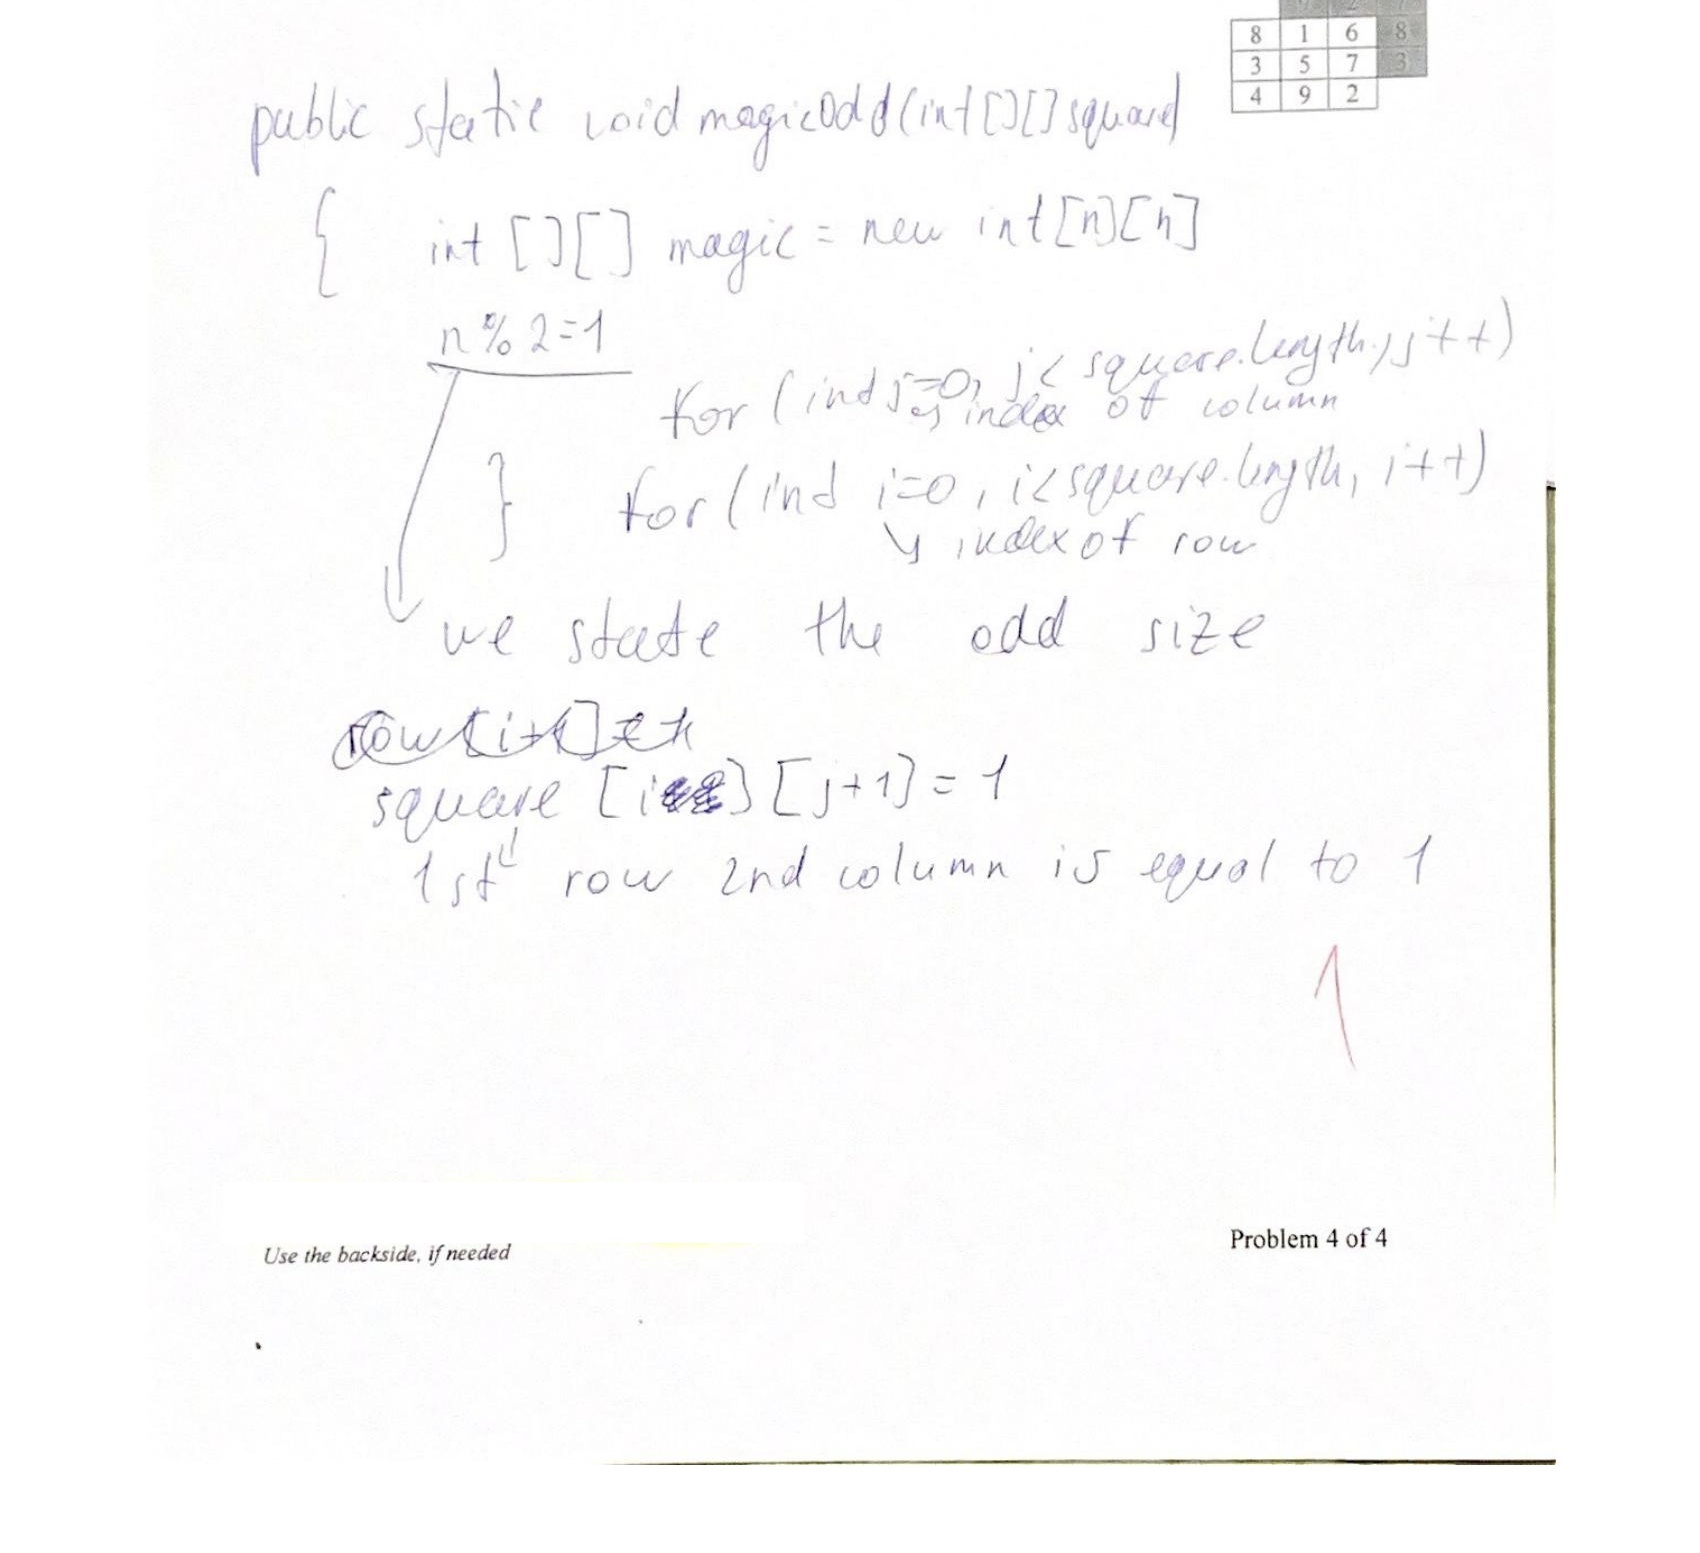 9 2 7
8 1 6 8
3 5 7 3
4 9 2
public static void magicOdd(int[][] square)
{ int [][] magic = new int[n][n]
n % 2=1
for (int j=0, j< square.length, j++)
↳ index of column
} for (ind i=0, i<square.length, i++)
↳ index of row
we state the odd size
square [i] [j+1] = 1
1st row 2nd column is equal to 1
1
Use the backside, if needed
Problem 4 of 4